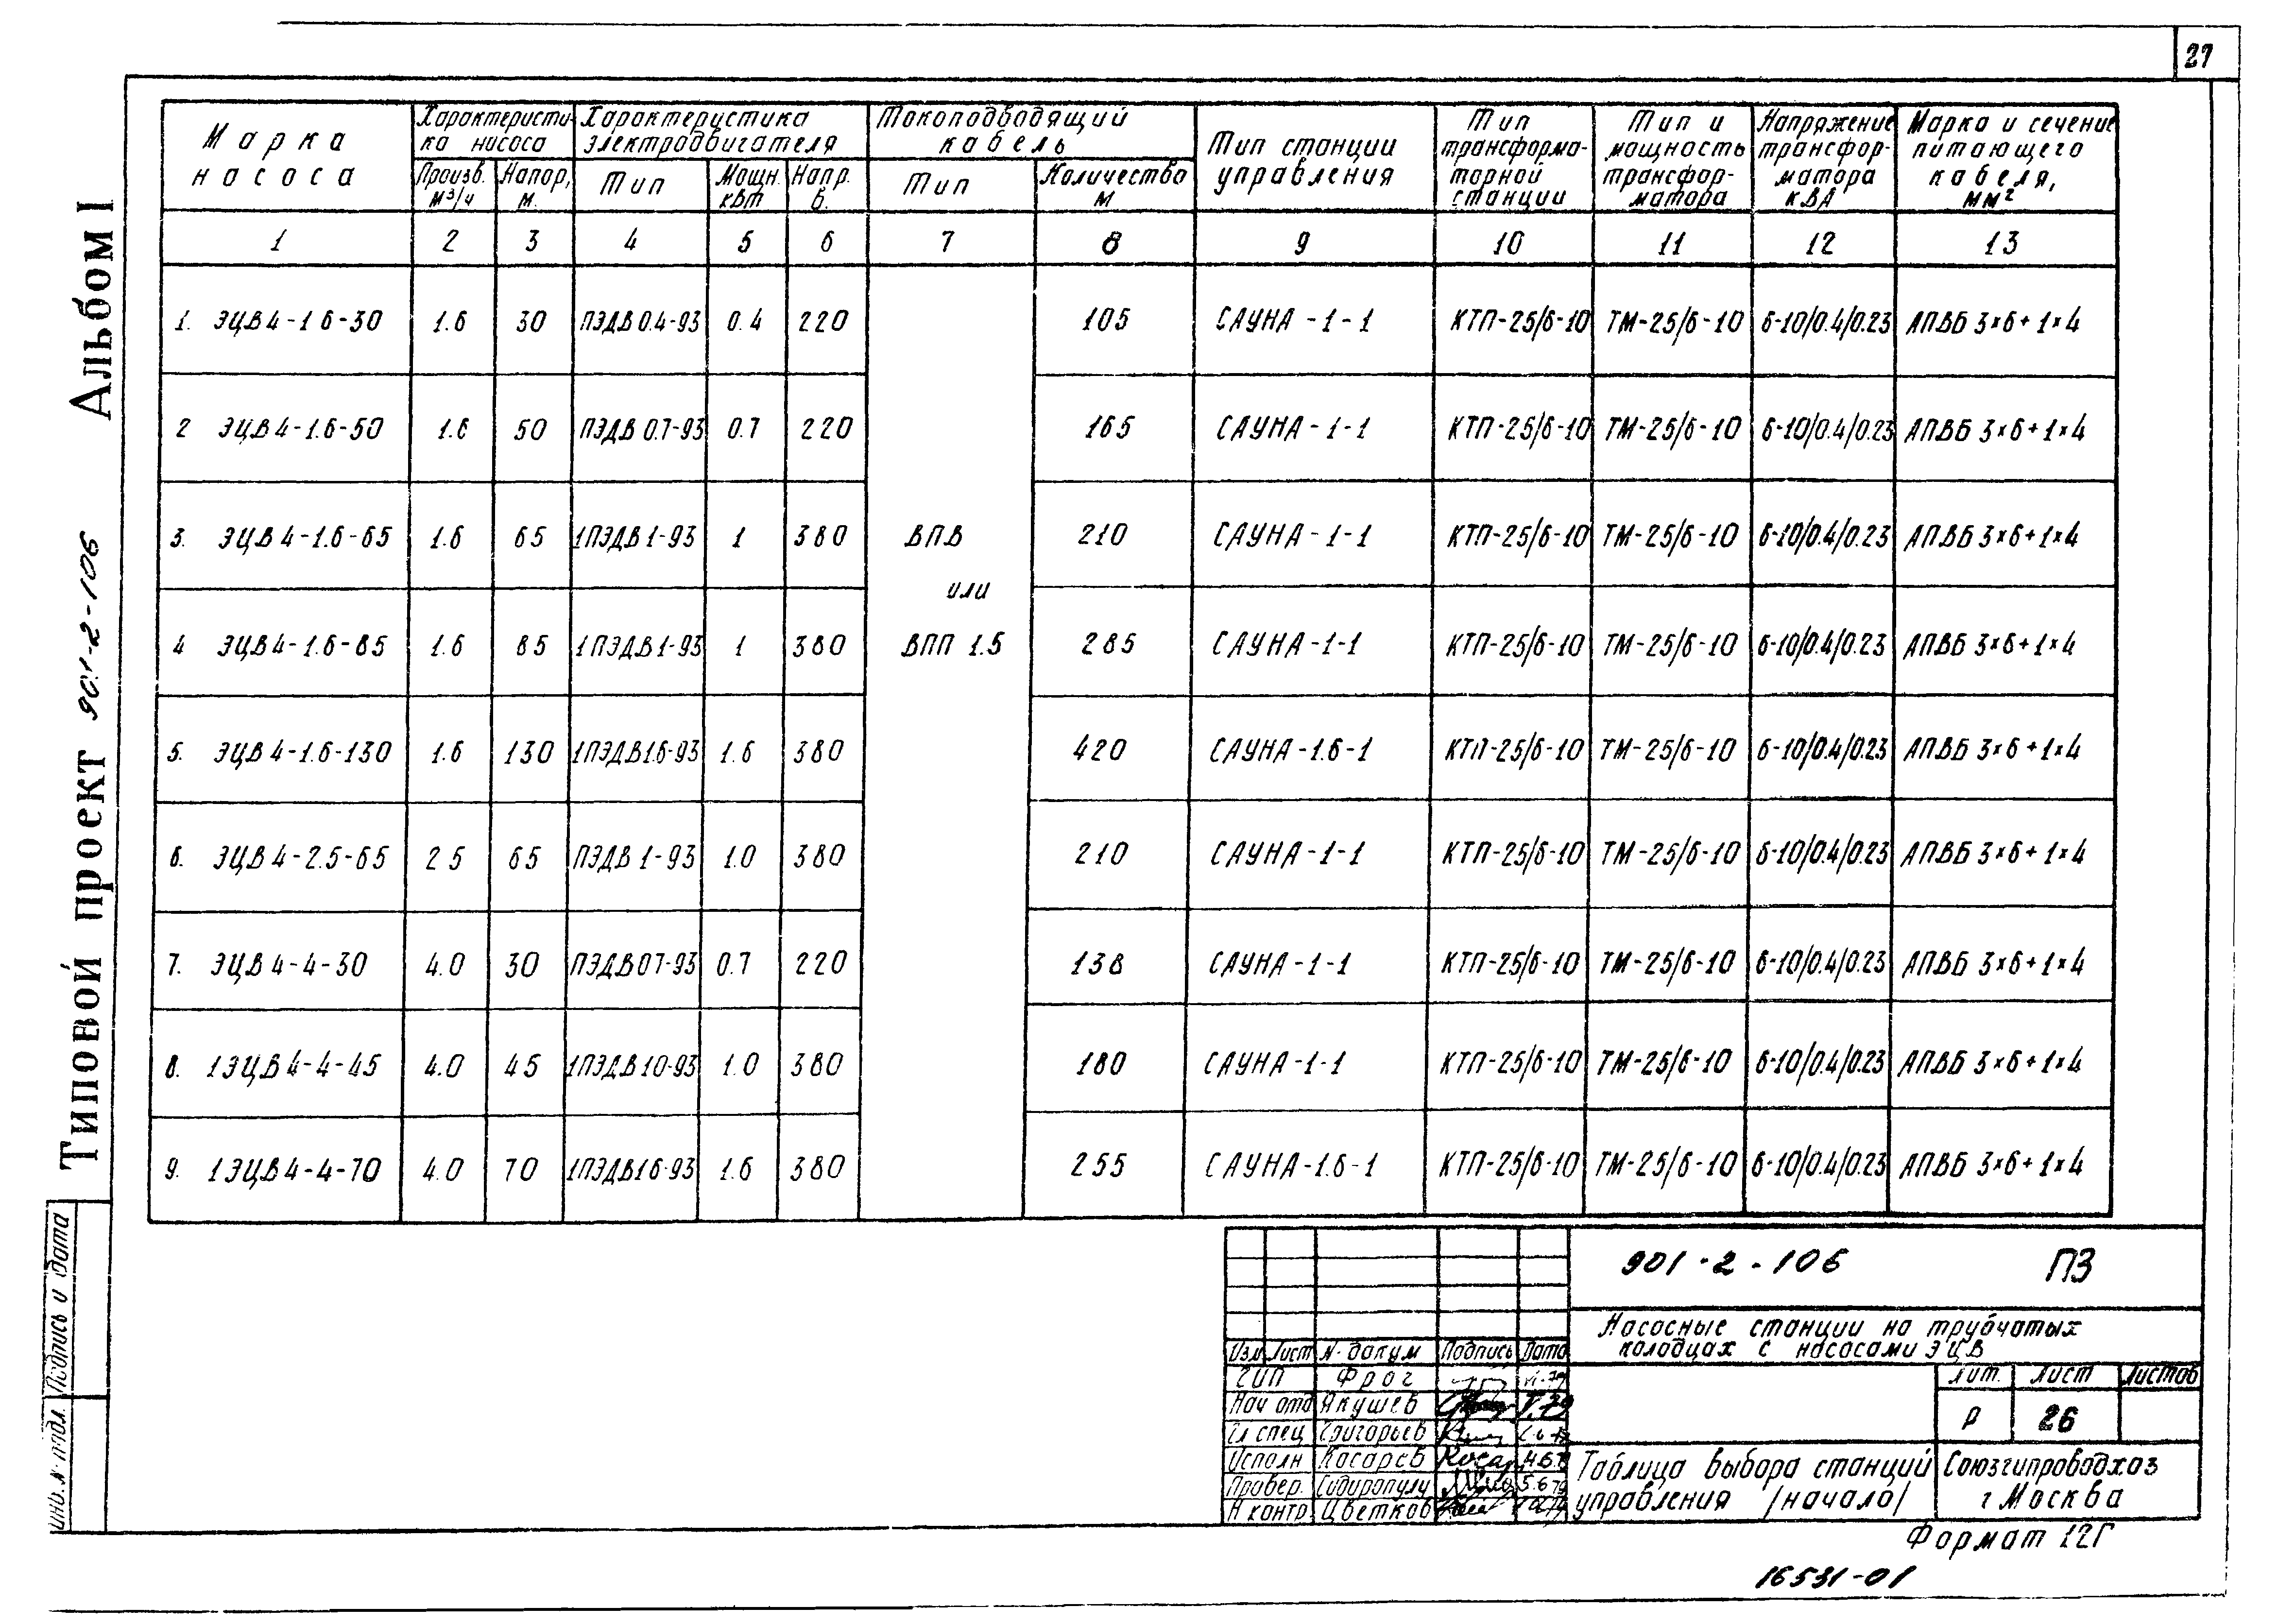 27
Альбом I
Типовой проект 901-2-106
Подпись и дата
Инв. № подл.
Марка насоса
Характеристика насоса
Характеристика электродвигателя
Токоподводящий кабель
Тип станции управления
Тип трансформаторной станции
Тип и мощность трансформатора
Напряжение трансформатора кВА
Марка и сечение питающего кабеля, мм²
Произв. м³/ч
Напор, м.
Тип
Мощн. кВт
Напр. В.
Тип
Количество м
1 2 3 4 5 6 7 8 9 10 11 12 13
1. ЭЦВ 4-1 6-30 1.6 30 ПЭДВ 0.4-93 0.4 220 105 САУНА-1-1 КТП-25/6-10 ТМ-25/6-10 6-10/0.4/0.23 АПВБ 3×6+1×4
2 ЭЦВ 4-1.6-50 1.6 50 ПЭДВ 0.7-93 0.7 220 165 САУНА-1-1 КТП-25/6-10 ТМ-25/6-10 6-10/0.4/0.23 АПВБ 3×6+1×4
3. ЭЦВ 4-1.6-65 1.6 65 1ПЭДВ 1-93 1 380 ВПВ 210 САУНА-1-1 КТП-25/6-10 ТМ-25/6-10 6-10/0.4/0.23 АПВБ 3×6+1×4
или
4 ЭЦВ 4-1.6-85 1.6 85 1ПЭДВ 1-93 1 380 ВПП 1.5 285 САУНА-1-1 КТП-25/6-10 ТМ-25/6-10 6-10/0.4/0.23 АПВБ 3×6+1×4
5. ЭЦВ 4-1.6-130 1.6 130 1ПЭДВ1.6-93 1.6 380 420 САУНА-1.6-1 КТП-25/6-10 ТМ-25/6-10 6-10/0.4/0.23 АПВБ 3×6+1×4
6. ЭЦВ 4-2.5-65 2 5 65 ПЭДВ 1-93 1.0 380 210 САУНА-1-1 КТП-25/6-10 ТМ-25/6-10 6-10/0.4/0.23 АПВБ 3×6+1×4
7. ЭЦВ 4-4-30 4.0 30 ПЭДВ 0 7-93 0.7 220 138 САУНА-1-1 КТП-25/6-10 ТМ-25/6-10 6-10/0.4/0.23 АПВБ 3×6+1×4
8. 1ЭЦВ 4-4-45 4.0 45 1ПЭДВ 1 0-93 1.0 380 180 САУНА-1-1 КТП-25/6-10 ТМ-25/6-10 6-10/0.4/0.23 АПВБ 3×6+1×4
9. 1ЭЦВ 4-4-70 4.0 70 1ПЭДВ1 6-93 1.6 380 255 САУНА-1.6-1 КТП-25/6-10 ТМ-25/6-10 6-10/0.4/0.23 АПВБ 3×6+1×4
901-2-106 ПЗ
Насосные станции на трубчатых
колодцах с насосами ЭЦВ
Изм Лист № докум Подпись Дата
ГИП Фрог
Нач отд Якушев
Гл спец Григорьев
Исполн Косарев
Провер. Сидиропулу
Н контр Цветков
Лит. Лист Листов
Р 26
Таблица выбора станций
управления /начало/
Союзгипроводхоз
г Москва
Формат 12Г
16531-01